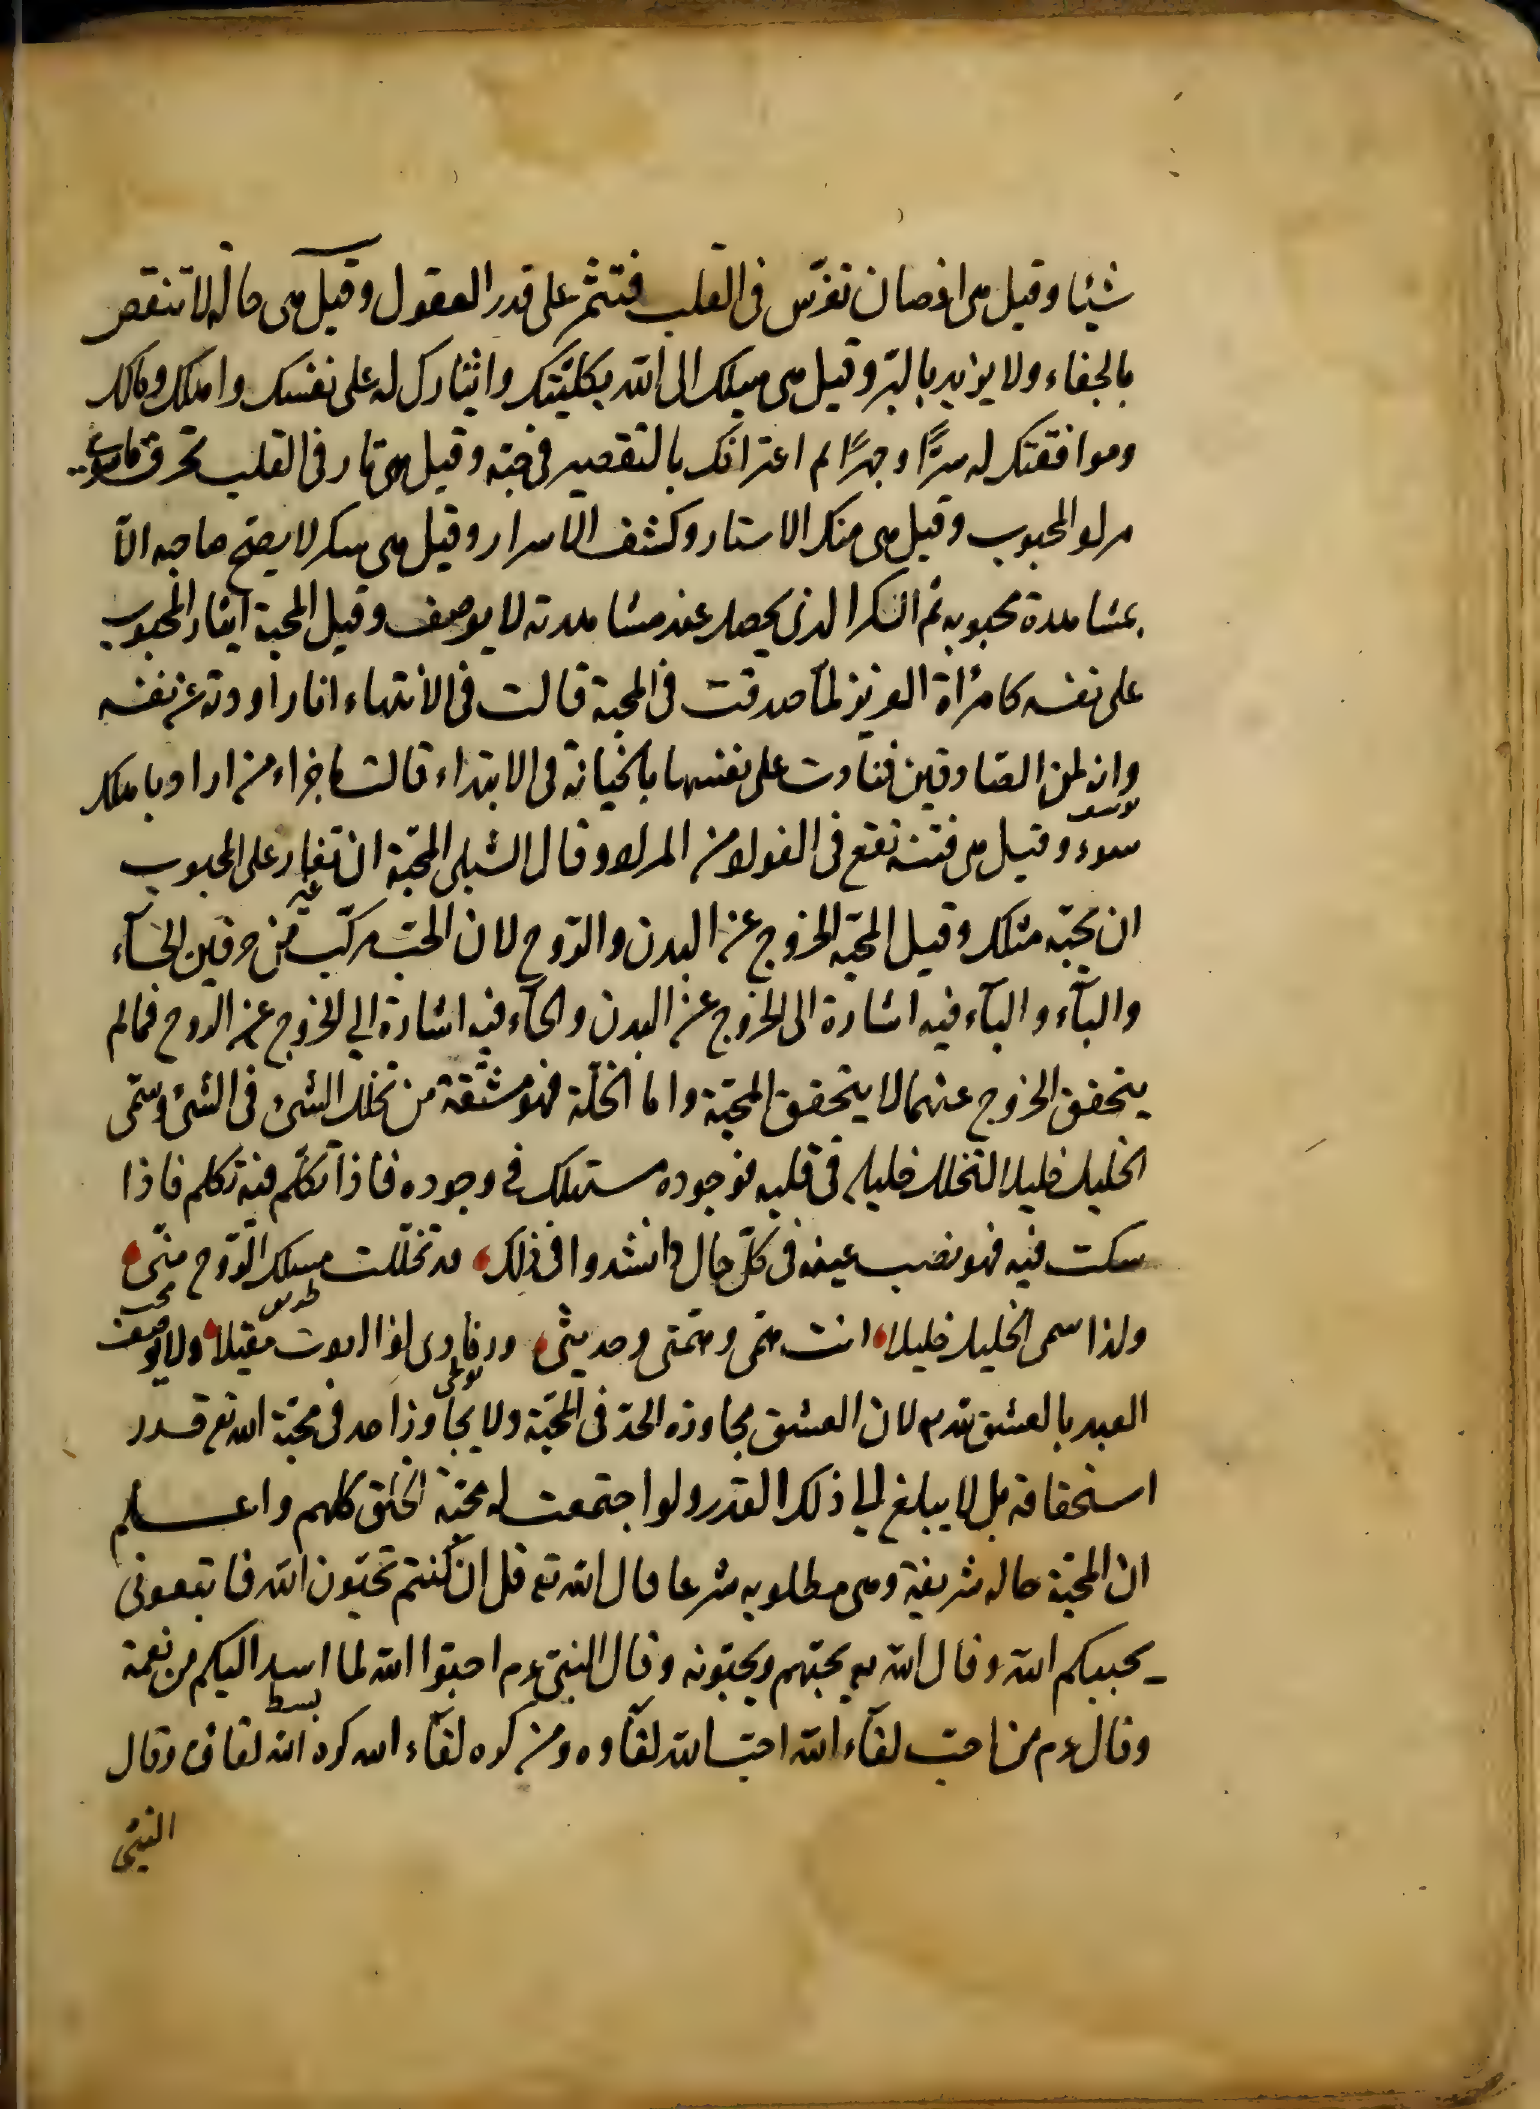 شيئا وقيل هى اغصان تغرس فى القلب فتثمر على قدر العقول وقيل هى حالة لا تنقص
بالجفاء ولا يزيد بالبر وقيل هى ميلك الى الله بكليتك وايثارك له على نفسك واهلك ومالك
وموافقتك له سرًّا وجهرًا ثم اعترافك بالتقصير فى حبه وقيل هى نار فى القلب تحرق ما سوى
مراد المحبوب وقيل هى هتك الاستار وكشف الاسرار وقيل هى سكر لا يصح صاحبه الا
بمشاهدة محبوبه ثم السكر الذى يحصل عند مشاهدته لا يوصف وقيل المحبة ايثار المحبوب
على نفسه كامرأة العزيز لما صدقت فى المحبة قالت فى الانتهاء انا راودته عن نفسه
وانه لمن الصادقين فنادت على نفسها بالخيانة فى الابتداء قالت ما جزاء من اراد باهلك
سوء وقيل هى فتنة تقع فى الفؤاد من المراد وقال الشبلى المحبة ان تغار على المحبوب
ان يحبه مثلك وقيل المحبة الخروج عن البدن والروح لان الحب مركب من حرفين الحاء
والباء والباء فيه اشارة الى الخروج عن البدن والحاء فيه اشارة الى الخروج عن الروح فما لم
يتحقق الخروج عنهما لا يتحقق المحبة واما الخلة فهو مشتقة من تخلل الشئ فى الشئ وسمى
الخليل خليلا لتخلل خليله فى قلبه فوجوده مستهلك فى وجوده فاذا تكلم فبه تكلم فاذا
سكت فبه فهو نصب عينه فى كل حال وانشدوا فى ذلك قد تخللت مسلك الروح منى
ولذا سمى الخليل خليلا انت همى وهمتى وحديثى ورقادى اذا اردت مقيلا ولا يوصف
العبد بالعشق لله لان العشق مجاوزة الحد فى المحبة ولا يجاوز احد فى محبة الله تع قدر
استحقاقه بل لا يبلغ الى ذلك القدر ولو اجتمعت له محبة الخلق كلهم واعلم
ان المحبة حالة شريفة وهى مطلوبه شرعا قال الله تع قل ان كنتم تحبون الله فاتبعونى
يحببكم الله وقال الله تع يحبهم ويحبونه وقال النبى عم احبوا الله لما اسدا اليكم من نعمة
وقال عم من احب لقاء الله احب الله لقاوه ومن كره لقاء الله كره الله لقاؤه وقال
النبى